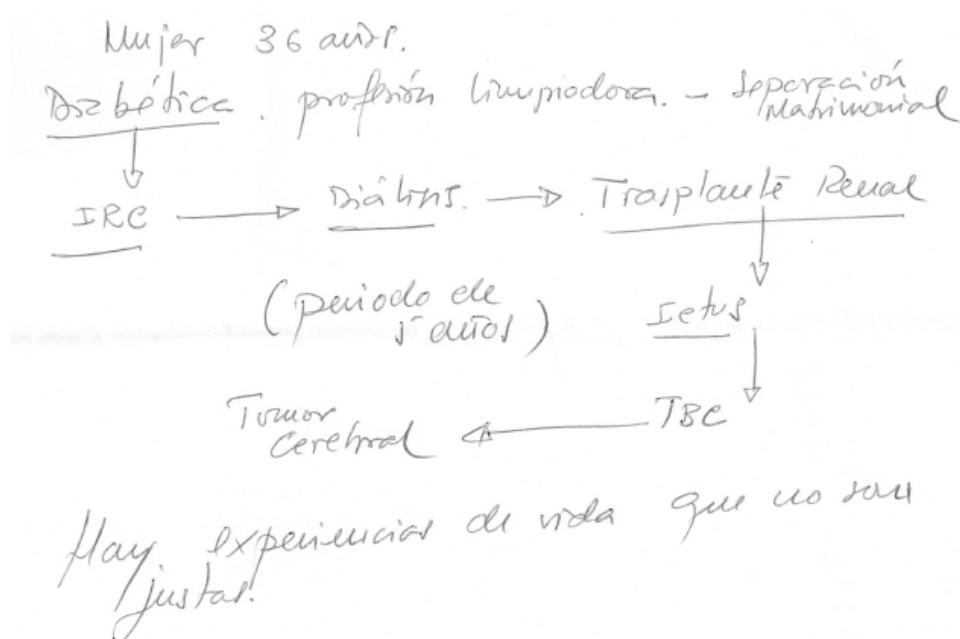 Mujer 36 años.
Diabética. profesión limpiadora. - Separación
Matrimonial
IRC → Diálisis. → Trasplante Renal
(periodo de
5 años)
Ictus
Tumor
Cerebral ← TBC
Hay experiencias de vida que no son
justas.